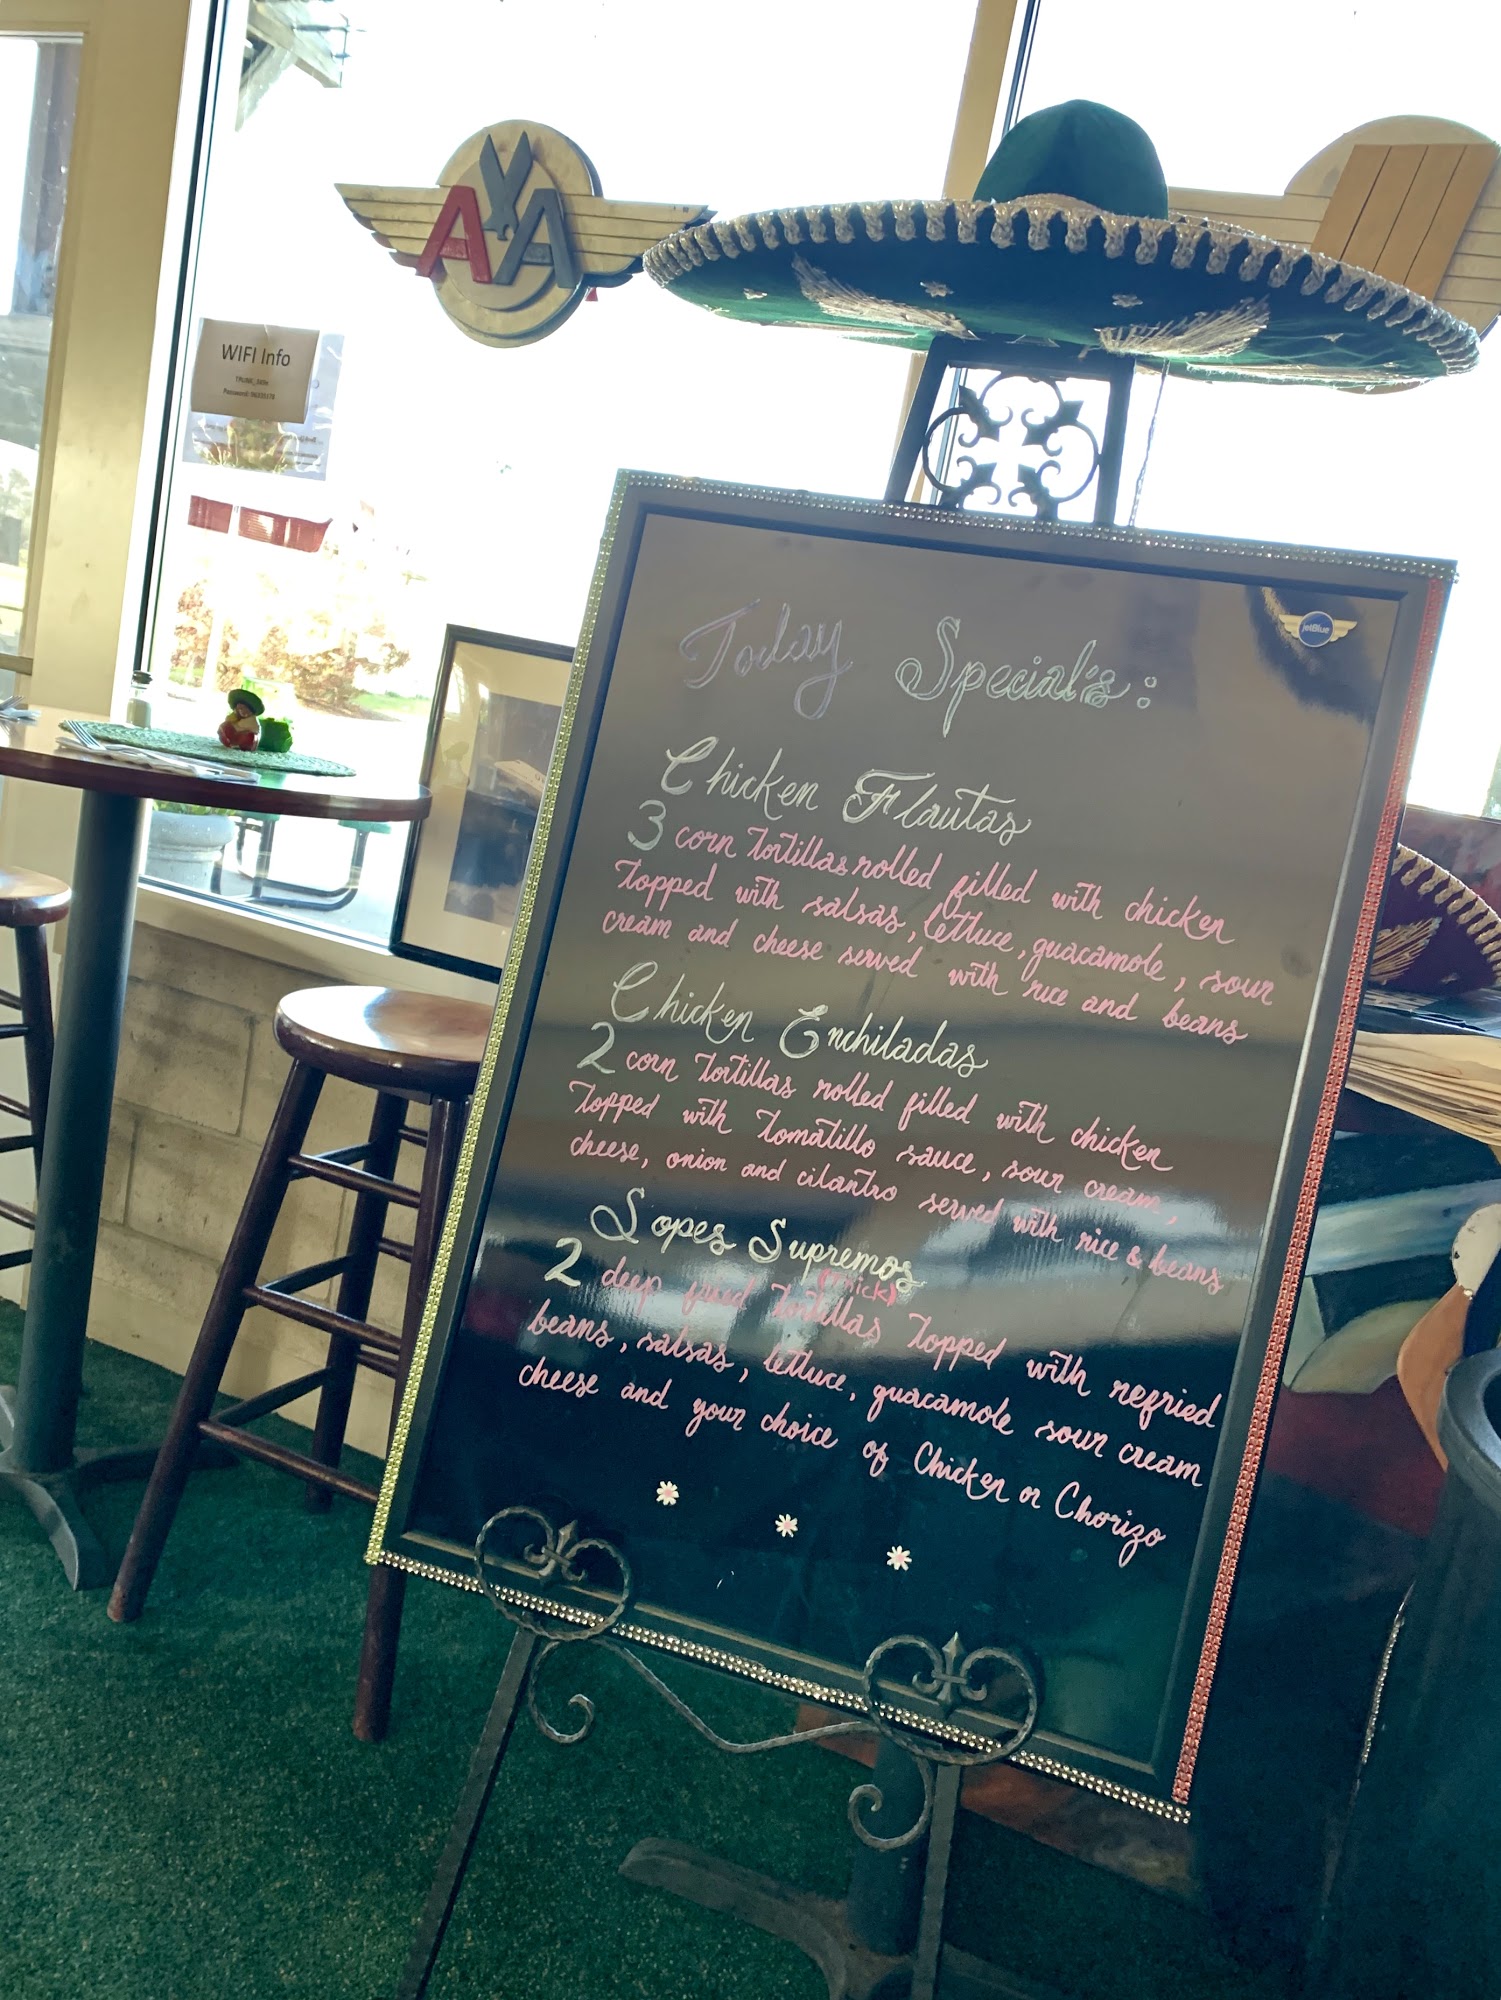 AA
WIFI Info
jetBlue
Today Special's:
Chicken Flautas
3 corn tortillas rolled filled with chicken
topped with salsas, lettuce, guacamole, sour
cream and cheese served with rice and beans
Chicken Enchiladas
2 corn tortillas rolled filled with chicken
topped with tomatillo sauce, sour cream,
cheese, onion and cilantro served with rice & beans
Sopes Supremos
(Thick)
2 deep fried tortillas topped with refried
beans, salsas, lettuce, guacamole sour cream
cheese and your choice of Chicken or Chorizo